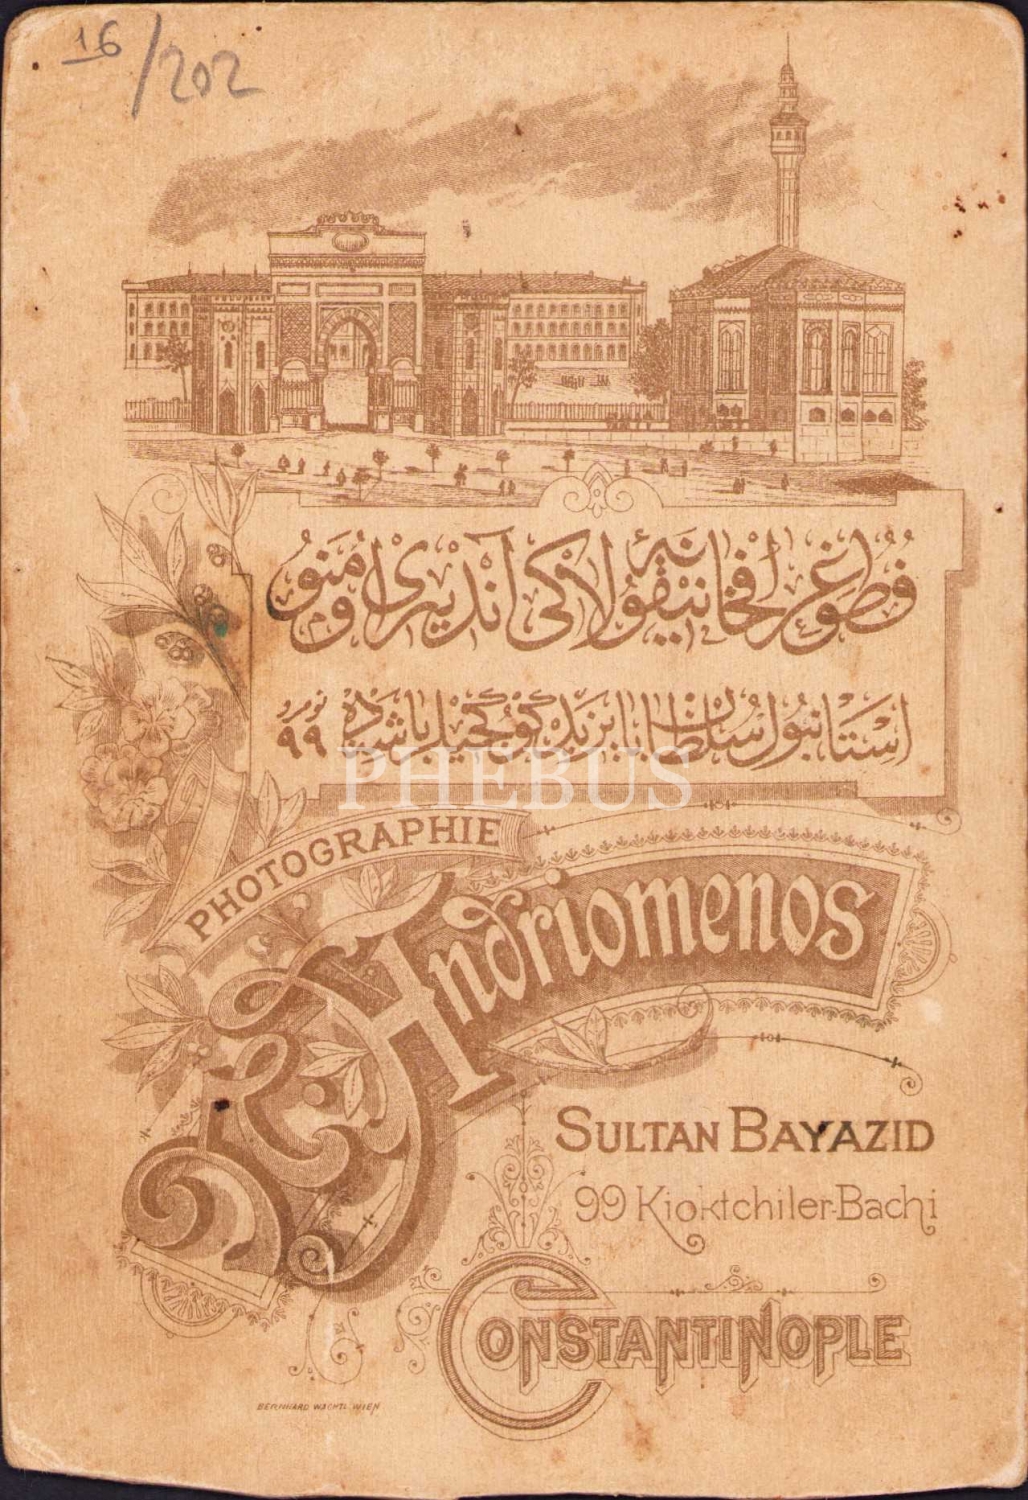 16/202
فطوغرافخانهٔ نیقولاکی آندیریاومنو
استانبول سلطان بایزید کوکجیلر باشنده نومرو ٩٩
PHEBUS
PHOTOGRAPHIE
Andriomenos
SULTAN BAYAZID
99 Kioktchiler-Bachi
CONSTANTINOPLE
BERNHARD WACHTL WIEN